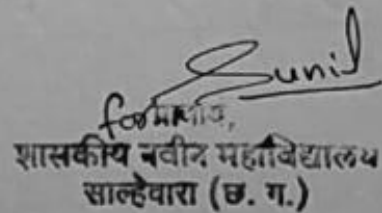 Sunil
for
शासकीय नवीन महाविद्यालय
साल्हेवारा (छ. ग.)